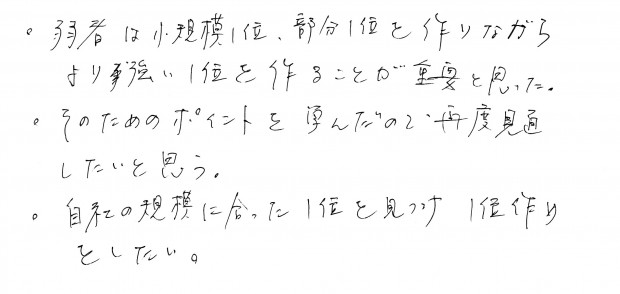 ・弱者は小規模1位、部分1位を作りながら
より力強い1位を作ることが重要と思った。
・そのためのポイントを学んだので再度見直
したいと思う。
・自社の規模に合った1位を見つけ 1位作り
をしたい。